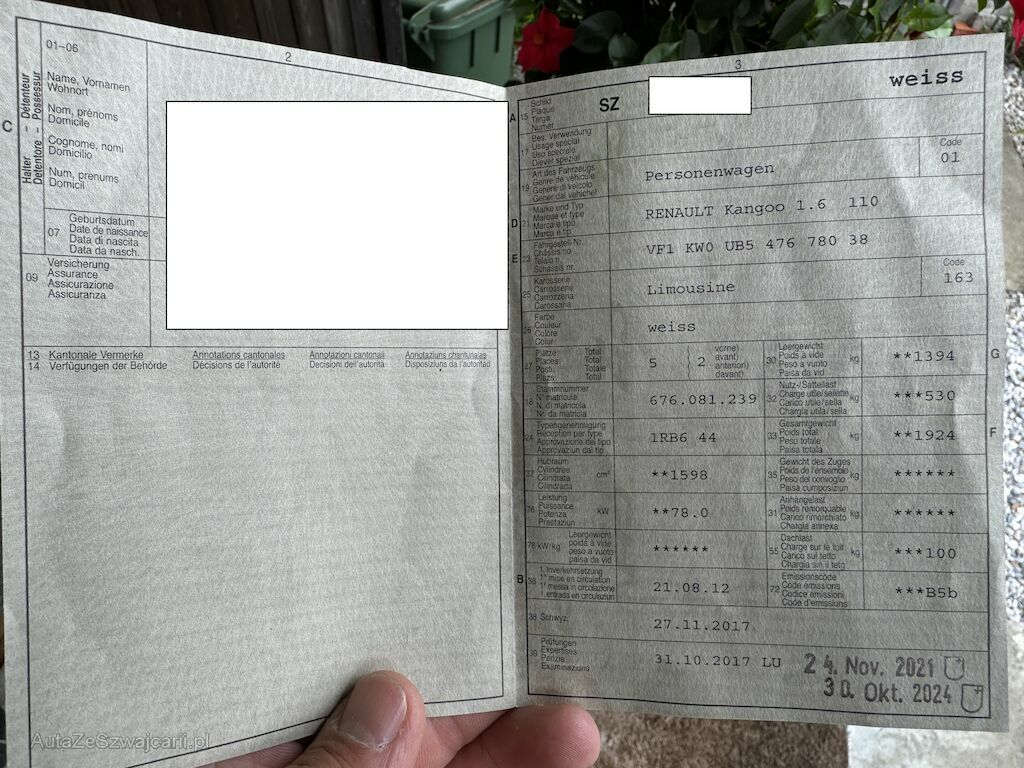 2
01–06
Name, Vornamen
Wohnort
Nom, prénoms
Domicile
Cognome, nomi
Domicilio
Num, prenums
Domicil
Halter – Détenteur
Detentore – Possessur
C
07
Geburtsdatum
Date de naissance
Data di nascita
Data da nasch.
09
Versicherung
Assurance
Assicurazione
Assicuranza
13 Kantonale Vermerke Annotations cantonales Annotazioni cantonali Annotaziuns chantunalas
14 Verfügungen der Behörde Décisions de l'autorité Decisioni dell'autorità Disposiziuns da l'autoritad
3
weiss
A 15
Schild
Plaque
Targa
Numer
SZ
17
Bes. Verwendung
Usage spécial
Uso speciale
Diever spezial
19
Art des Fahrzeugs
Genre de véhicule
Genere di veicolo
Gener dal vehichel
Personenwagen
Code
01
D 21
Marke und Typ
Marque et type
Marca e tipo
Marca e tip
RENAULT Kangoo 1.6 110
E 23
Fahrgestell-Nr.
Châssis no
Telaio n.
Schassis nr.
VF1 KW0 UB5 476 780 38
25
Karosserie
Carrosserie
Carrozzeria
Carossaria
Limousine
Code
163
26
Farbe
Couleur
Colore
Colur
weiss
27
Plätze: Total
Places: Total
Posti: Totale
Plazs: Total
5
2
vorne)
avant)
anteriori)
davant)
30
Leergewicht
Poids à vide
Peso a vuoto
Paisa da vid
kg
**1394
G
18
Stammnummer
N° matricule
N. di matricola
Nr. da matricla
676.081.239
32
Nutz-/Sattellast
Charge utile/sellette
Carico utile/sella
Chargia utila/sella
kg
***530
24
Typengenehmigung
Réception par type
Approvazione del tipo
Approvaziun dal tip
1RB6 44
33
Gesamtgewicht
Poids total
Peso totale
Paisa totala
kg
**1924
F
37
Hubraum
Cylindrée
Cilindrata
Cilindrada
cm³
**1598
35
Gewicht des Zuges
Poids de l'ensemble
Peso del convoglio
Paisa cumposiziun
kg
******
76
Leistung
Puissance
Potenza
Prestaziun
kW
**78.0
31
Anhängelast
Poids remorquable
Carico rimorchiato
Chargia annexa
kg
******
78 kW/kg
Leergewicht
poids à vide
peso a vuoto
paisa da vid
******
55
Dachlast
Charge sur le toit
Carico sul tetto
Chargia sin il tetg
kg
***100
B 36
1. Inverkehrsetzung
1re mise en circulation
1. messa in circolazione
1. entrada en circulaziun
21.08.12
72
Emissionscode
Code émissions
Codice emissioni
Code d'emissiuns
***B5b
38 Schwyz,
27.11.2017
39
Prüfungen
Expertises
Perizie
Examinaziuns
31.10.2017 LU
24. Nov. 2021
30. Okt. 2024
AutaZeSzwajcarii.pl